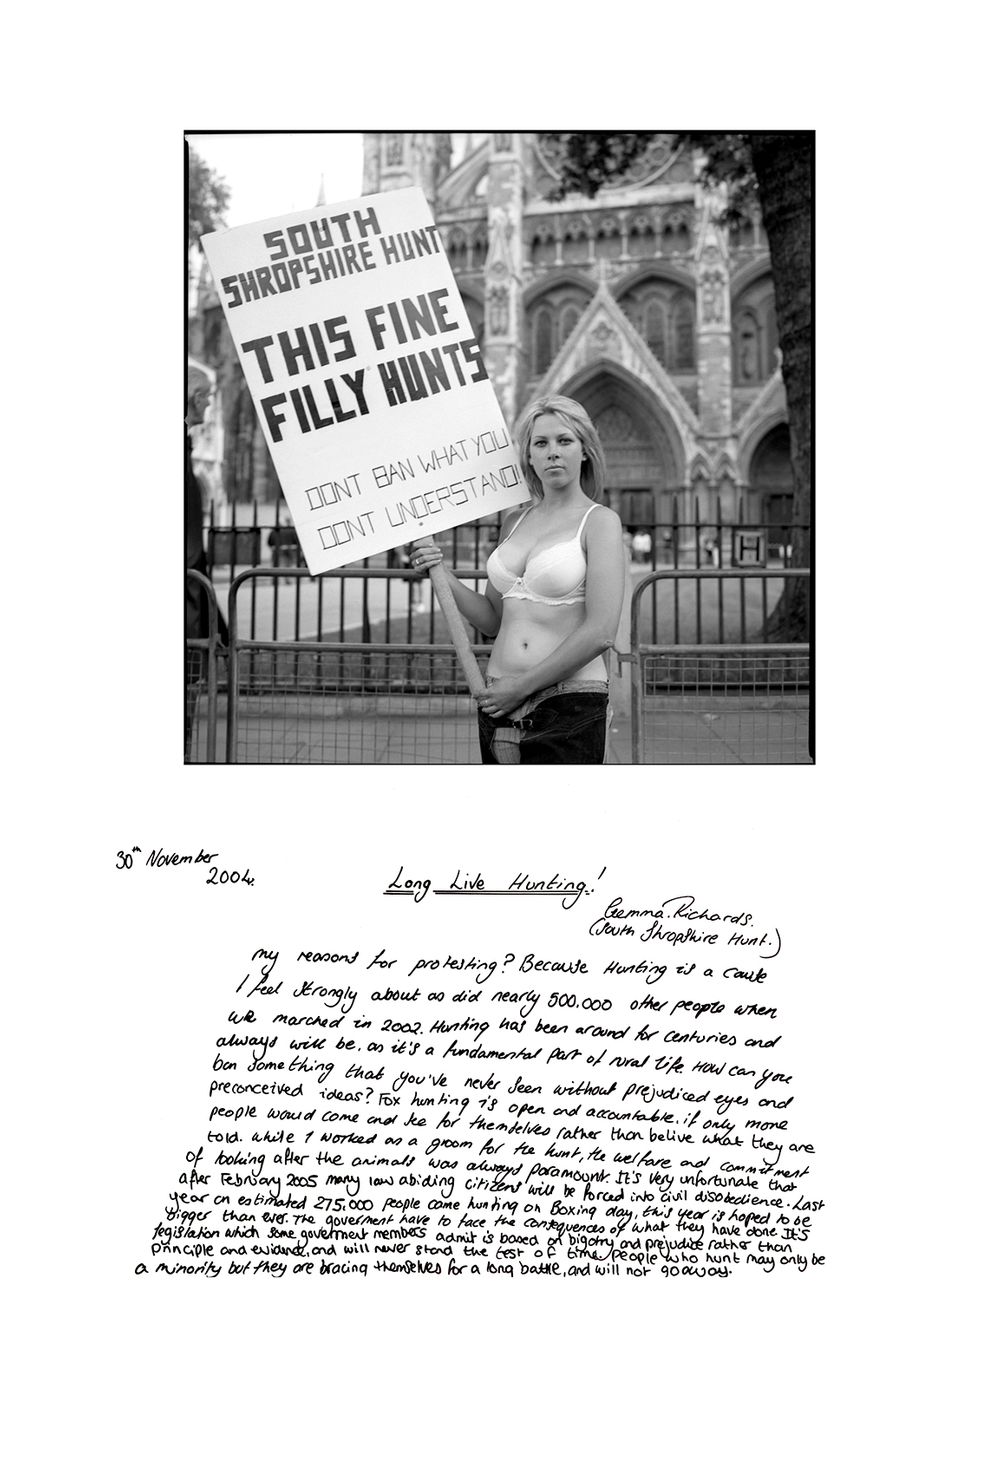 SOUTH
SHROPSHIRE HUNT
THIS FINE
FILLY HUNTS
DONT BAN WHAT YOU
DONT UNDERSTAND!
H
30th November
2004.
Long Live Hunting!
Gemma Richards.
(South Shropshire Hunt.)
my reasons for protesting? Because Hunting is a cause
I feel strongly about as did nearly 500,000 other people when
we marched in 2002. Hunting has been around for centuries and
always will be, as it's a fundamental part of rural life. How can you
ban something that you've never seen without prejudiced eyes and
preconceived ideas? Fox hunting is open and accountable, if only more
people would come and see for themselves rather than belive what they are
told. While I worked as a groom for the hunt, the welfare and commitment
of looking after the animals was always paramount. It's very unfortunate that
after February 2005 many law abiding citizens will be forced into civil disobedience. Last
year an estimated 275,000 people came hunting on Boxing day, this year is hoped to be
bigger than ever. The goverment have to face the consequences of what they have done. It's
legislation which some goverment members admit is based on bigotry and prejudice rather than
principle and evidence, and will never stand the test of time. People who hunt may only be
a minority but they are bracing themselves for a long battle, and will not go away.